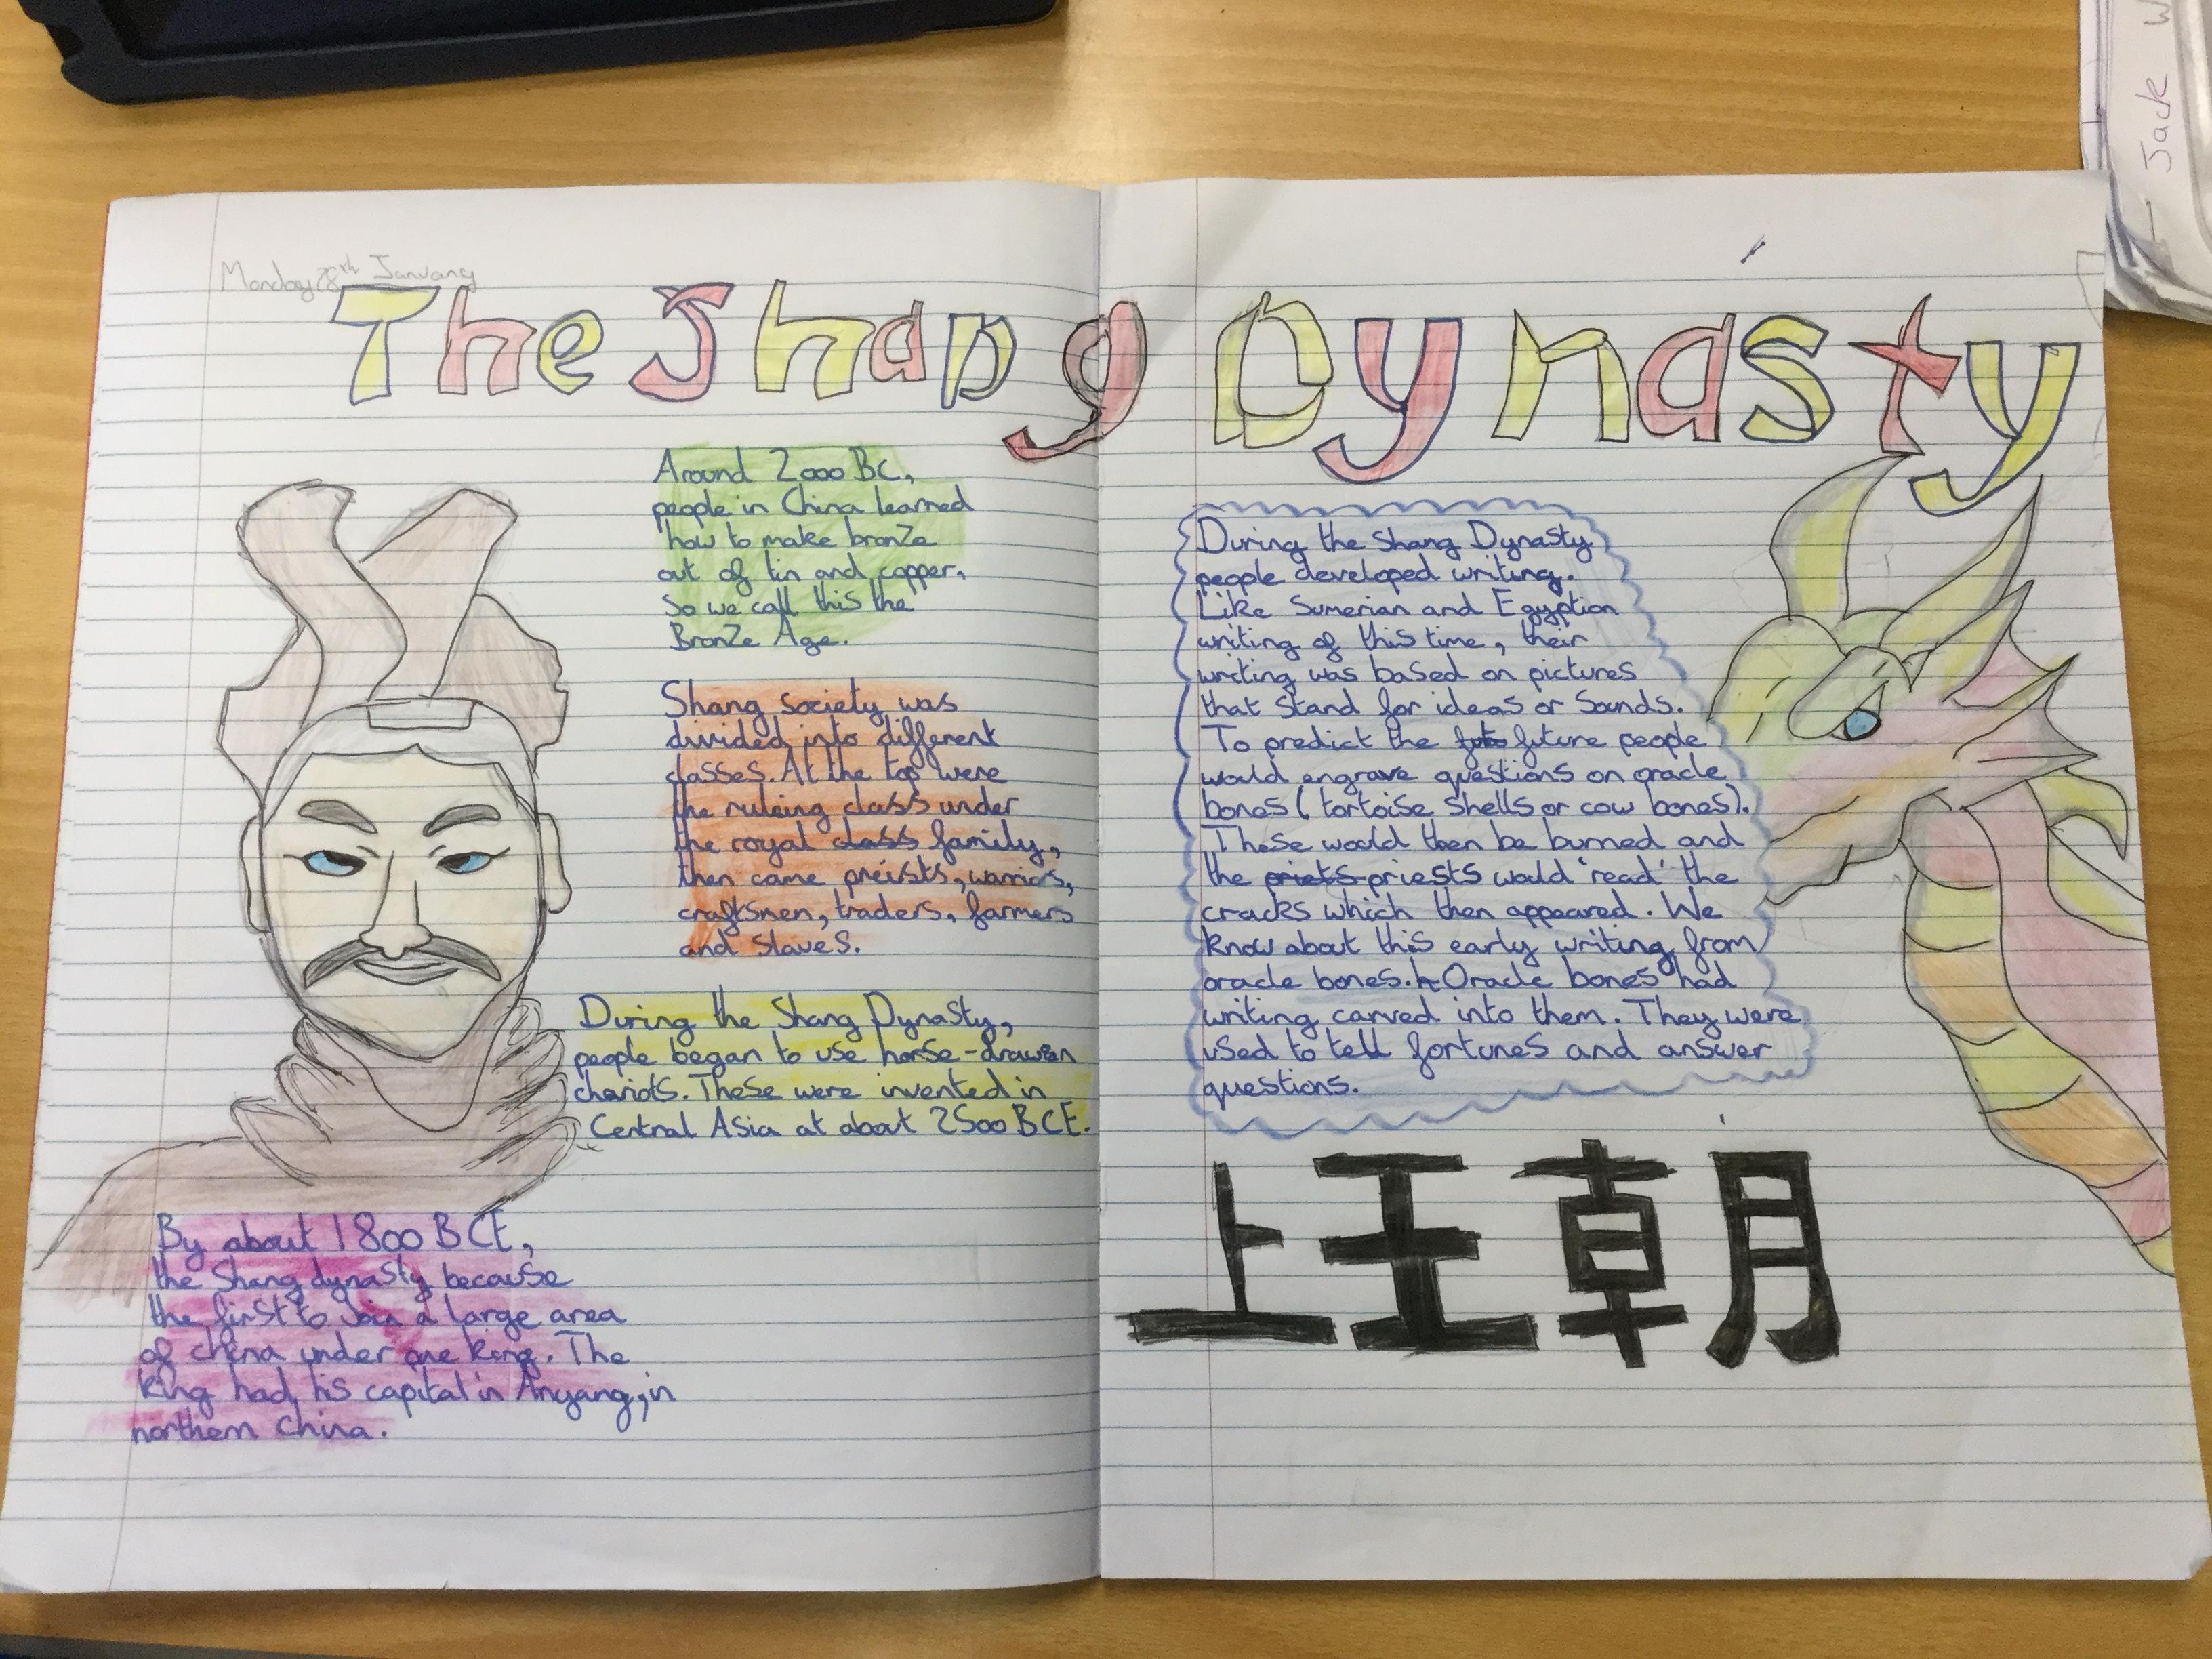 Jack W
Monday 28th January
The Shang Dynasty
Around 2000 BC,
people in China learned
how to make bronze
out of tin and copper,
So we call this the
Bronze Age.
Shang society was
divided into different
classes. At the top were
the ruleing class under
the royal class family,
then came preists, warriors,
craftsmen, traders, farmers
and slaves.
During the Shang Dynasty,
people began to use horse-drawn
chariots. These were invented in
Central Asia at about 2500 BCE.
By about 1800 BCE,
the Shang dynasty because
the first to Join a large area
of china under one king. The
king had his capital in Anyang, in
northern China.
During the Shang Dynasty
people developed writing.
Like Sumerian and Egyption
writing of this time, their
writing was based on pictures
that stand for ideas or Sounds.
To predict the futo future people
would engrave questions on oracle
bones (tortoise shells or cow bones).
These would then be burned and
the priets priests would 'read' the
cracks which then appeared. We
know about this early writing from
oracle bones. Oracle bones had
writing carved into them. They were
used to tell fortunes and answer
questions.
上王朝